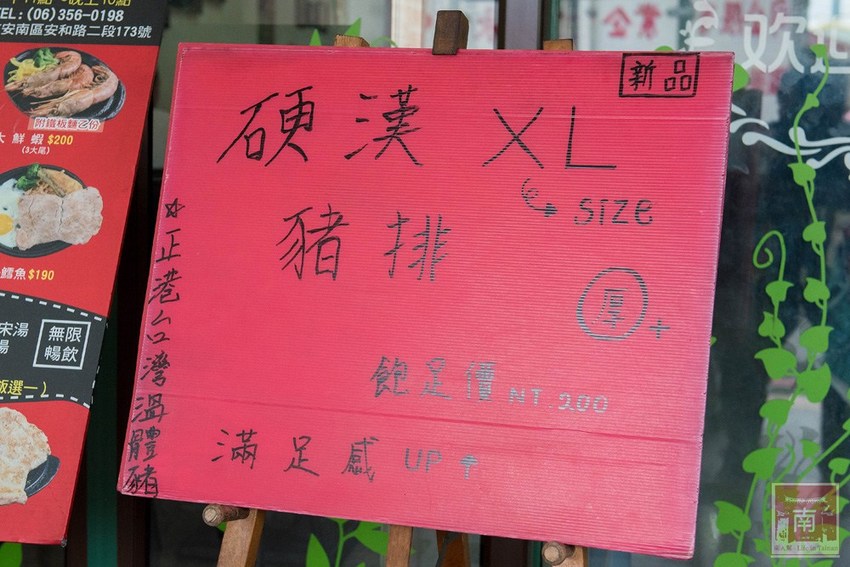 TEL:(06)356-0198
安南區安和路二段173號
附鐵板麵之份
大鮮蝦$200
(3大尾)
鱈魚$190
宋湯
湯
無限
暢飲
飯選一)
新品
硬漢 XL
SIZE
豬排
厚+
飽足價 NT.200
滿足感 UP
☆正港台灣溫體豬
欢迎
南